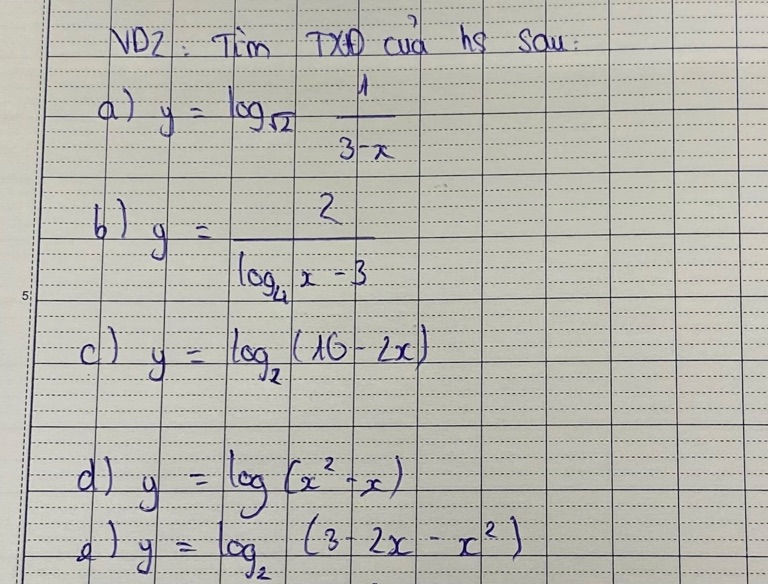 VD2: Tìm TXĐ của hs sau:
a) y = log_√2 1/(3-x)
b) y = 2/(log_4 x - 3)
c) y = log_2 (16 - 2x)
d) y = log (x² - x)
e) y = log_2 (3 - 2x - x²)
5